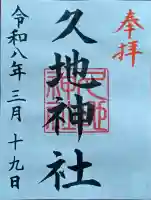 奉拝
久地神社
令和八年三月十九日